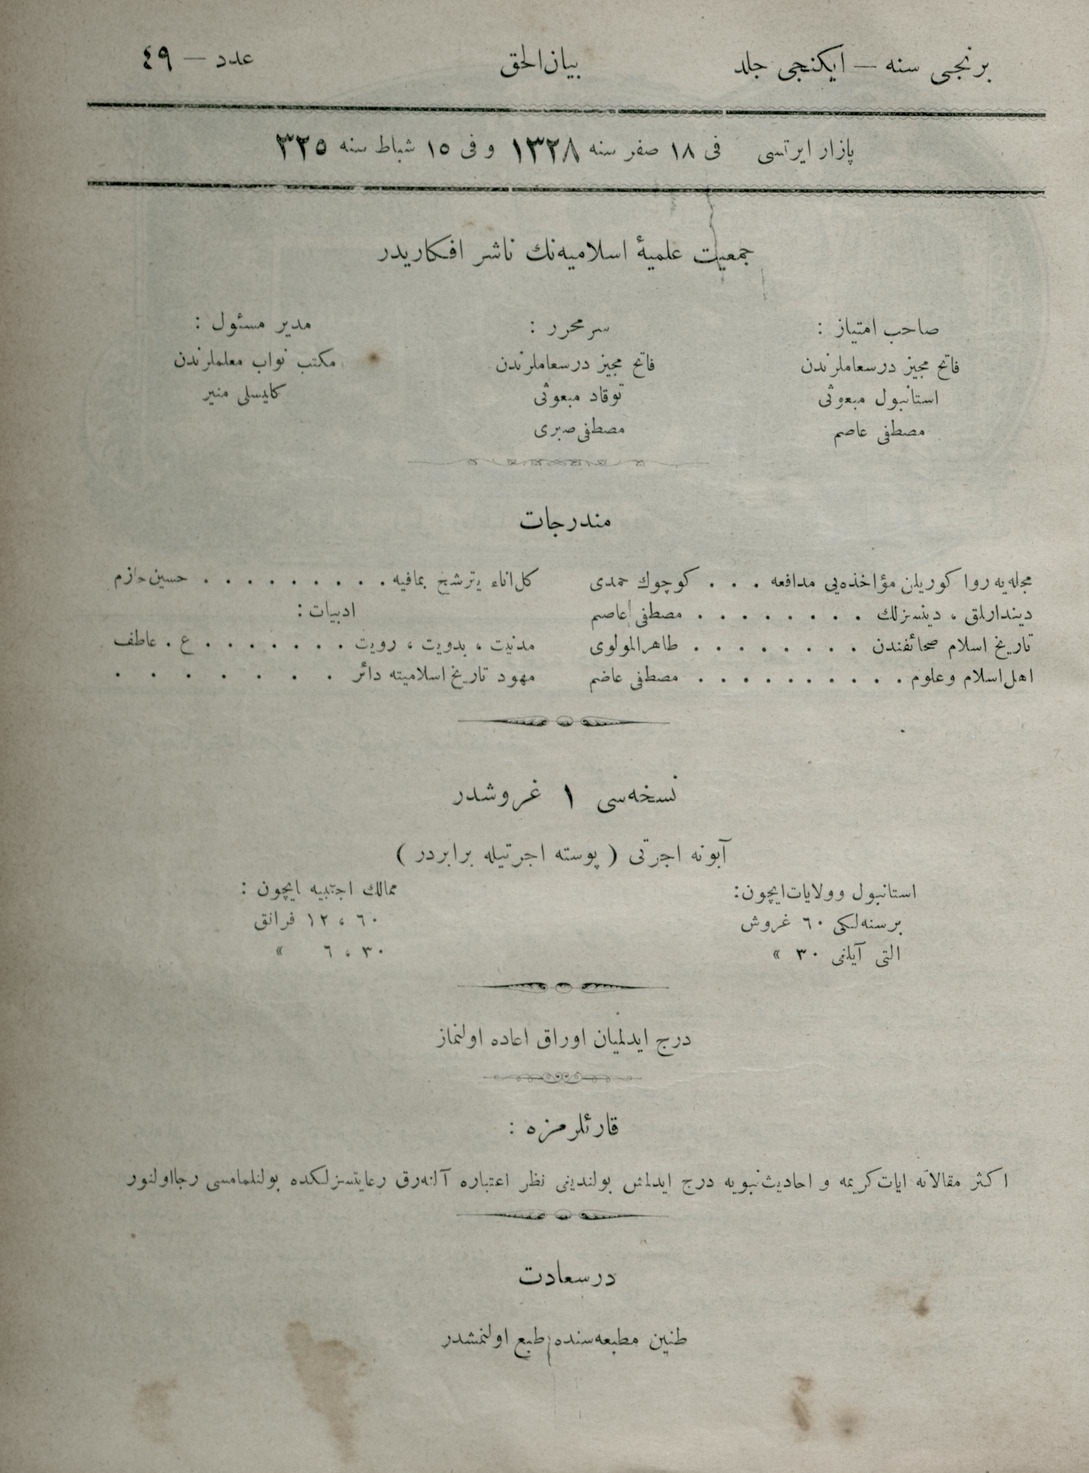 برنجی سنه — ایکنجی جلد
بیان الحق
عدد — ٤٩
پازار ایرتسی فی ١٨ صفر سنه ١٣٢٨ و فی ١٥ شباط سنه ٣٢٥
جمعیت علمیهٔ اسلامیه‌نك ناشر افكاریدر
صاحب امتیاز :
فاتح مجیز درسعاملرندن
استانبول مبعوثی
مصطفی عاصم
سر محرر :
فاتح مجیز درسعاملرندن
توقاد مبعوثی
مصطفی صبری
مدیر مسئول :
مكتب نواب معلملرندن
كلیسلی منیر
مندرجات
مجله‌یه روا كوریلن مؤاخذه‌یی مدافعه . . . كوچوك حمدی
دیندارلق ، دینسزلك . . . . . . . . مصطفی عاصم
تاریخ اسلام صحائفندن . . . . . . . . طاهر المولوی
اهل اسلام وعلوم . . . . . . . . . . مصطفی عاضم
كل اناء یترشح بمافیه . . . . . . . . . حسین حازم
ادبیات :
مدنیت ، بدویت ، رویت . . . . . . . ع . عاطف
مهود تاریخ اسلامیته دائر . . . . . . .
نسخه‌سی ١ غروشدر
آبونه اجرتی ( پوسته اجرتیله برابردر )
استانبول وولایات ایچون :
برسنه‌لكی ٦٠ غروش
التی آیلغی ٣٠ »
ممالك اجنبیه ایچون :
٦٠ ، ١٢ فرانق
٣٠ ، ٦ »
درج ایدلمیان اوراق اعاده اولنماز
قارئلرمزه :
اكثر مقالاته ایات كریمه و احادیث نبویه درج ایدلمش بولندیغی نظر اعتباره آلنه‌رق رعایتسزلكده بولنلمامسی رجا اولنور
درسعادت
طنین مطبعه‌سنده طبع اولنمشدر